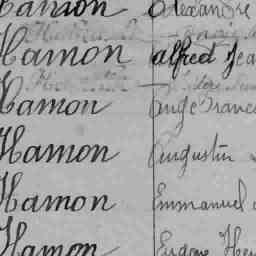 Hamon Alexandre
Hamon alfred Jea
Hamon Ange Franc
Hamon Augustin
Hamon Emmanuel
Hamon Eugène Hen